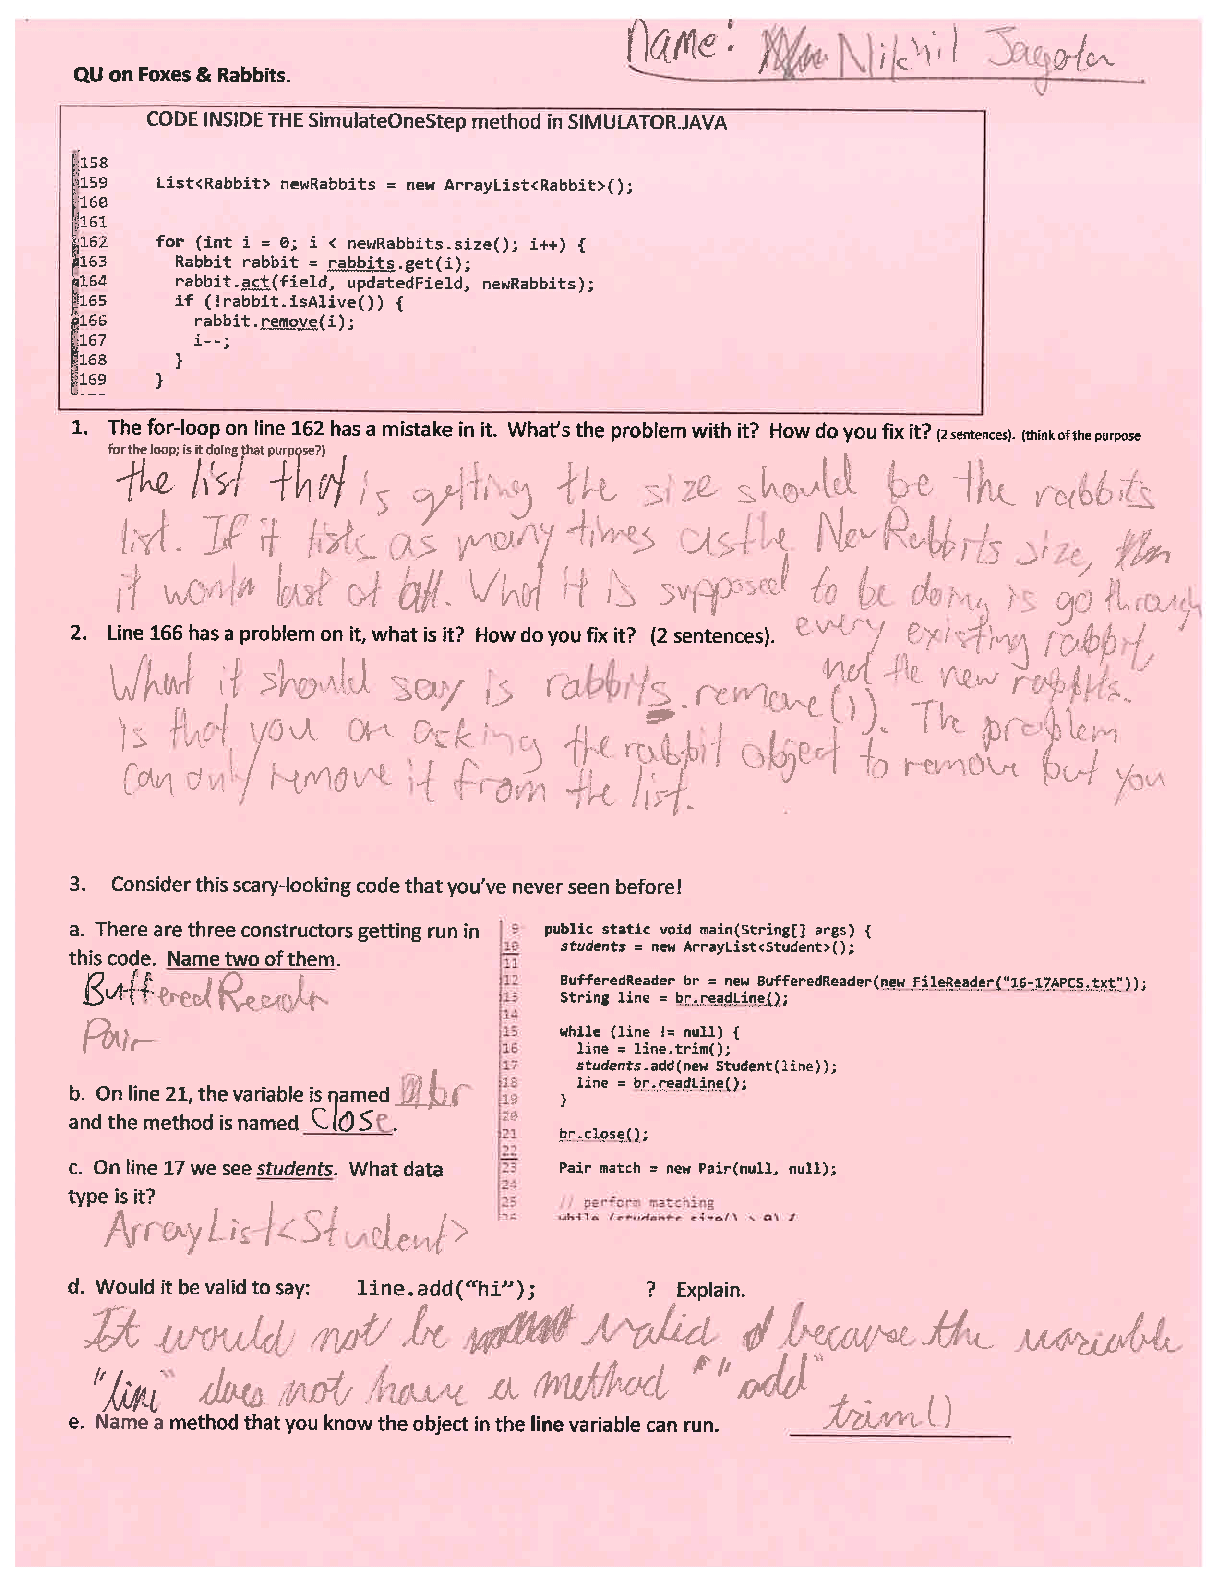 name: Nikhil Jagota
QU on Foxes & Rabbits.
CODE INSIDE THE SimulateOneStep method in SIMULATOR.JAVA
158
159 List<Rabbit> newRabbits = new ArrayList<Rabbit>();
160
161
162 for (int i = 0; i < newRabbits.size(); i++) {
163 Rabbit rabbit = rabbits.get(i);
164 rabbit.act(field, updatedField, newRabbits);
165 if (!rabbit.isAlive()) {
166 rabbit.remove(i);
167 i--;
168 }
169 }
1. The for-loop on line 162 has a mistake in it. What's the problem with it? How do you fix it? (2 sentences). (think of the purpose
for the loop; is it doing that purpose?)
the list that is getting the size should be the rabbits
list. If it lists as many times as the NewRabbits size,
it wouldn last at all. What it is supposed to be doing is go through
every existing rabbit,
not the new rabbits.
2. Line 166 has a problem on it, what is it? How do you fix it? (2 sentences).
What it should say is rabbits.remove(i). The problem
is that you are asking the rabbit object to remove but you
can only remove it from the list.
3. Consider this scary-looking code that you've never seen before!
a. There are three constructors getting run in
this code. Name two of them.
BufferedReader
Pair
b. On line 21, the variable is named br
and the method is named close.
c. On line 17 we see students. What data
type is it?
ArrayList<Student>
9 public static void main(String[] args) {
10 students = new ArrayList<Student>();
11
12 BufferedReader br = new BufferedReader(new FileReader("16-17APCS.txt"));
13 String line = br.readLine();
14
15 while (line != null) {
16 line = line.trim();
17 students.add(new Student(line));
18 line = br.readLine();
19 }
20
21 br.close();
22
23 Pair match = new Pair(null, null);
24
25 // perform matching
26 while (students.size() > 0) {
d. Would it be valid to say: line.add("hi"); ? Explain.
It would not be valid because the variable
"line" does not have a method "add"
e. Name a method that you know the object in the line variable can run. trim()